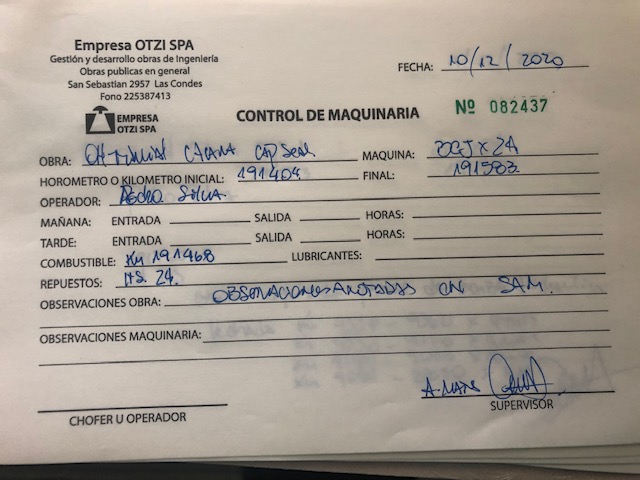 Empresa OTZI SPA
Gestión y desarrollo obras de Ingeniería
Obras publicas en general
San Sebastian 2957 Las Condes
Fono 225387413
FECHA: 10/12/2020
EMPRESA
OTZI SPA
CONTROL DE MAQUINARIA
Nº 082437
OBRA: MAQUINA:
HOROMETRO O KILOMETRO INICIAL: 191404 FINAL: 191582
OPERADOR: Pedro Silva
MAÑANA: ENTRADA SALIDA HORAS:
TARDE: ENTRADA SALIDA HORAS:
COMBUSTIBLE: Km 191468 LUBRICANTES:
REPUESTOS: 24
OBSERVACIONES OBRA: OBSERVACIONES ANOTADAS EN SAM.
OBSERVACIONES MAQUINARIA:
CHOFER U OPERADOR
SUPERVISOR